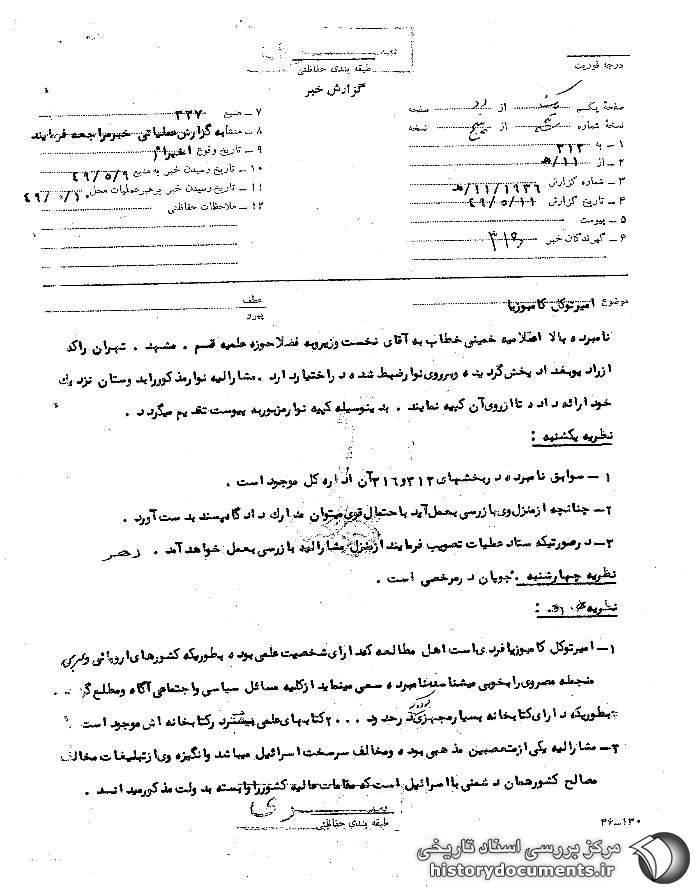 طبقه بندی حفاظتی
گزارش خبر
درجه فوریت
صفحه یکم یک از دو صفحه
نسخه شماره پنج از پنج نسخه
۱ – به ۳۱۲
۲ – از ۱۱/ه
۳ – شماره گزارش ۱۱/۱۹۳۶/ه
۴ – تاریخ گزارش ۴۹/۵/۱۱
۵ – پیوست
۶ – گیرندگان خبر
۷ – منبع ۳۳۷
۸ – منشا به گزارش عملیاتی خبر مراجعه فرمایند
۹ – تاریخ وقوع اخیرا"
۱۰ – تاریخ رسیدن خبر به منبع ۴۹/۵/۹
۱۱ – تاریخ رسیدن خبر برهبر عملیات محل ۴۹/۵/۱۰
۱۲ – ملاحظات حفاظتی
موضوع امیر توکل کامبوزیا
عطف
پیرو
نامبرده بالا اعلامیه خمینی خطاب به آقای نخست وزیر و به فضلا حوزه علمیه قسم . مشهد . تهران راکه
از رادیو بغداد پخش گردیده و برروی نوار ضبط شده در اختیار دارد . مشارالیه نوار مذکور را بدوستان نزدیك
خود ارائه داده تا از روی آن کپیه نمایند . بدینوسیله کپیه نوار مزبور به پیوست تقدیم میگردد .
نظریه یکشنبه :
۱ – سوابق نامبرده در بخشهای ۳۱۲ و ۳۱۶ آن اداره کل موجود است .
۲ – چنانچه از منزل وی بازرسی بعمل آید با احتمال قوی میتوان مدارك دادگاه پسند بدست آورد .
۳ – در صورتیکه ستاد عملیات تصویب فرمایند از منزل مشارالیه بازرسی بعمل خواهد آمد .
نظریه چهارشنبه . جوبان در مرخصی است .
نظریه ۱۱/ه :
۱ – امیر توکل کامبوزیا فردی است اهل مطالعه که دارای شخصیت علمی بوده بطوریکه کشورهای اروپائی و عربی
منجمله مصر وی را بخوبی میشناسند نامبرده سعی مینماید از کلیه مسائل سیاسی و اجتماعی آگاه و مطلع گردد .
بطوریکه دارای کتابخانه بسیار مجهزی بوده که در حدود ۲۰۰۰ کتابهای علمی بیشتر در کتابخانه اش موجود است .
۲ – مشارالیه یکی از متعصبین مذهبی بوده و مخالف سرسخت اسرائیل میباشد و انگیزه وی از تبلیغات مخالف
مصالح کشور همان دشمنی با اسرائیل است که مقامات عالیه کشور را وابسته بدولت مذکور میداند .
سری
طبقه بندی حفاظتی
۴۶–۱۳۰
مرکز بررسی اسناد تاریخی
historydocuments.ir